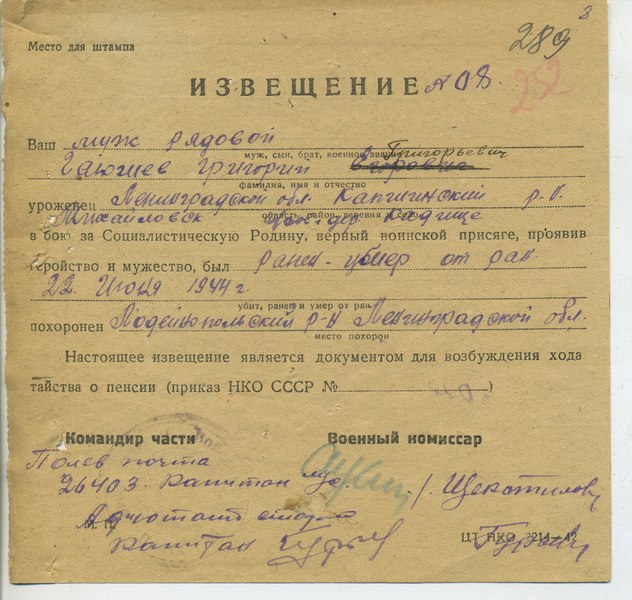 3
289
Место для штампа
22
ИЗВЕЩЕНИЕ № 08.
Ваш муж рядовой
муж, сын, брат, военное звание
Григорьевич
Гаюшев Григорий Егорович
фамилия, имя и отчество
уроженец Ленинградской обл. Капшинский р.н.
область, район, деревня и село
Михайловск дер. Кадище
в бою за Социалистическую Родину, верный воинской присяге, проявив
геройство и мужество, был ранен - умер от ран
22 Июня 1944 г
убит, ранен и умер от ран
похоронен Лодейнопольский р-н Ленинградской обл.
место похорон
Настоящее извещение является документом для возбуждения хода
тайства о пенсии (приказ НКО СССР № )
Командир части Военный комиссар
Полев почта
26403 капитан /. Щекотилов
Адъютант старш
№
капитан
ЦТ НКО 3214—42